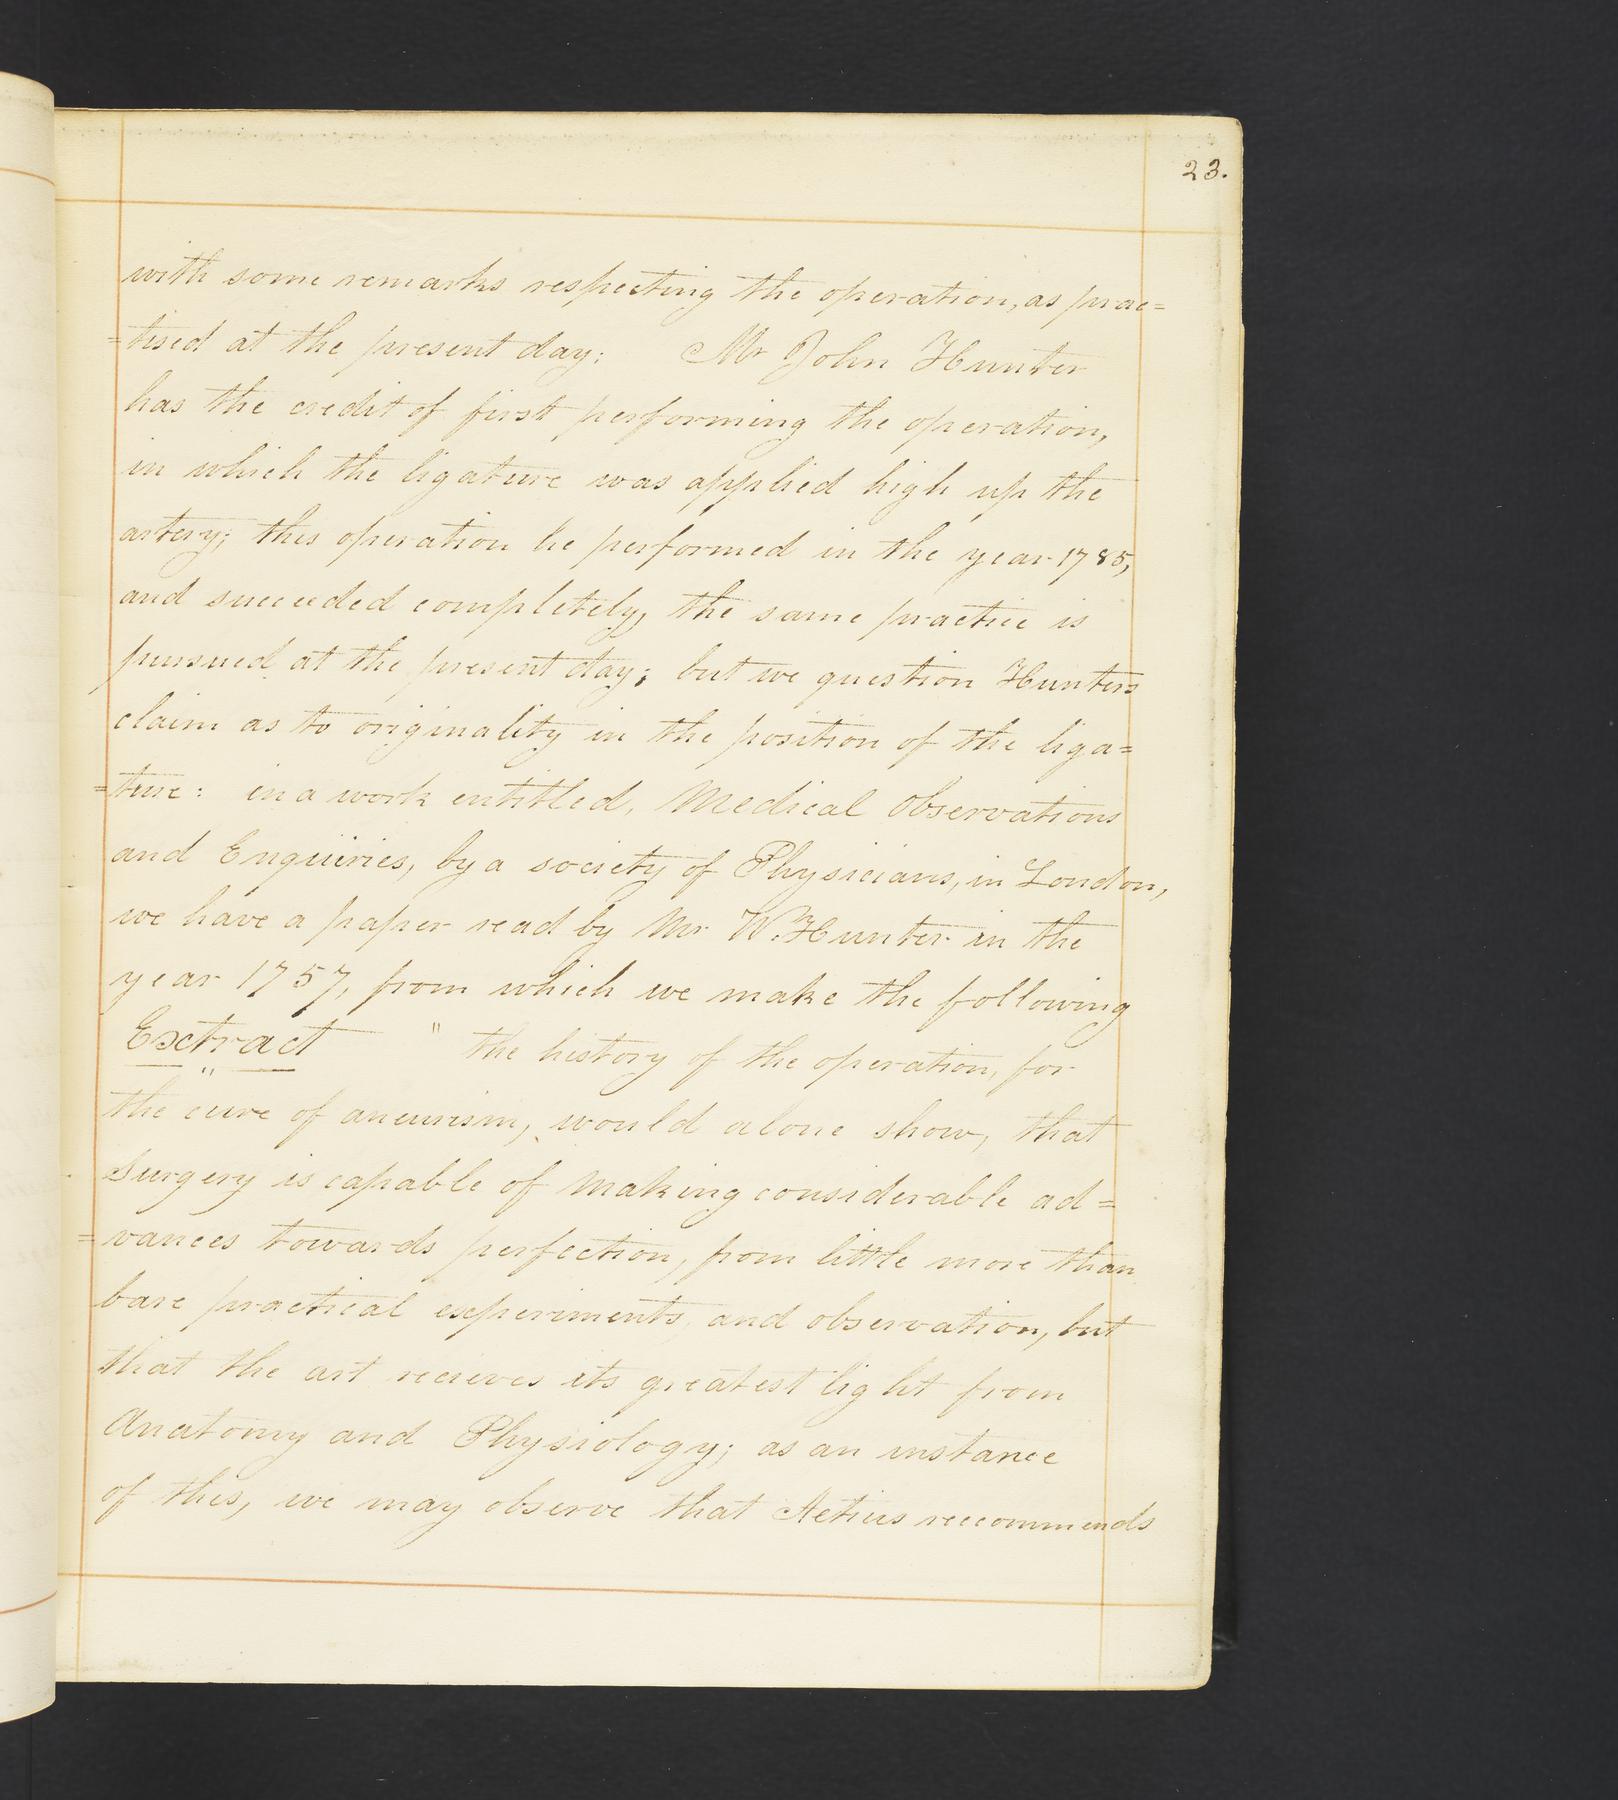 23.
with some remarks respecting the operation, as prac=
=tised at the present day; Mr John Hunter
has the credit of first performing the operation,
in which the ligature was applied high up the
artery; this operation he performed in the year 1785,
and succeeded completely, the same practice is
pursued at the present day; but we question Hunters
claim as to originality in the position of the liga=
=ture: in a work entitled, Medical Observations
and Enquiries, by a society of Physicians, in London,
we have a paper read by Mr W. Hunter in the
year 1757, from which we make the following
Extract " the history of the operation, for
the cure of aneurism, would alone show, that
Surgery is capable of making considerable ad=
=vances towards perfection, from little more than
bare practical experiments, and observation, but
that the art recieves its greatest light from
Anatomy and Physiology; as an instance
of this, we may observe that Aetius reccommends